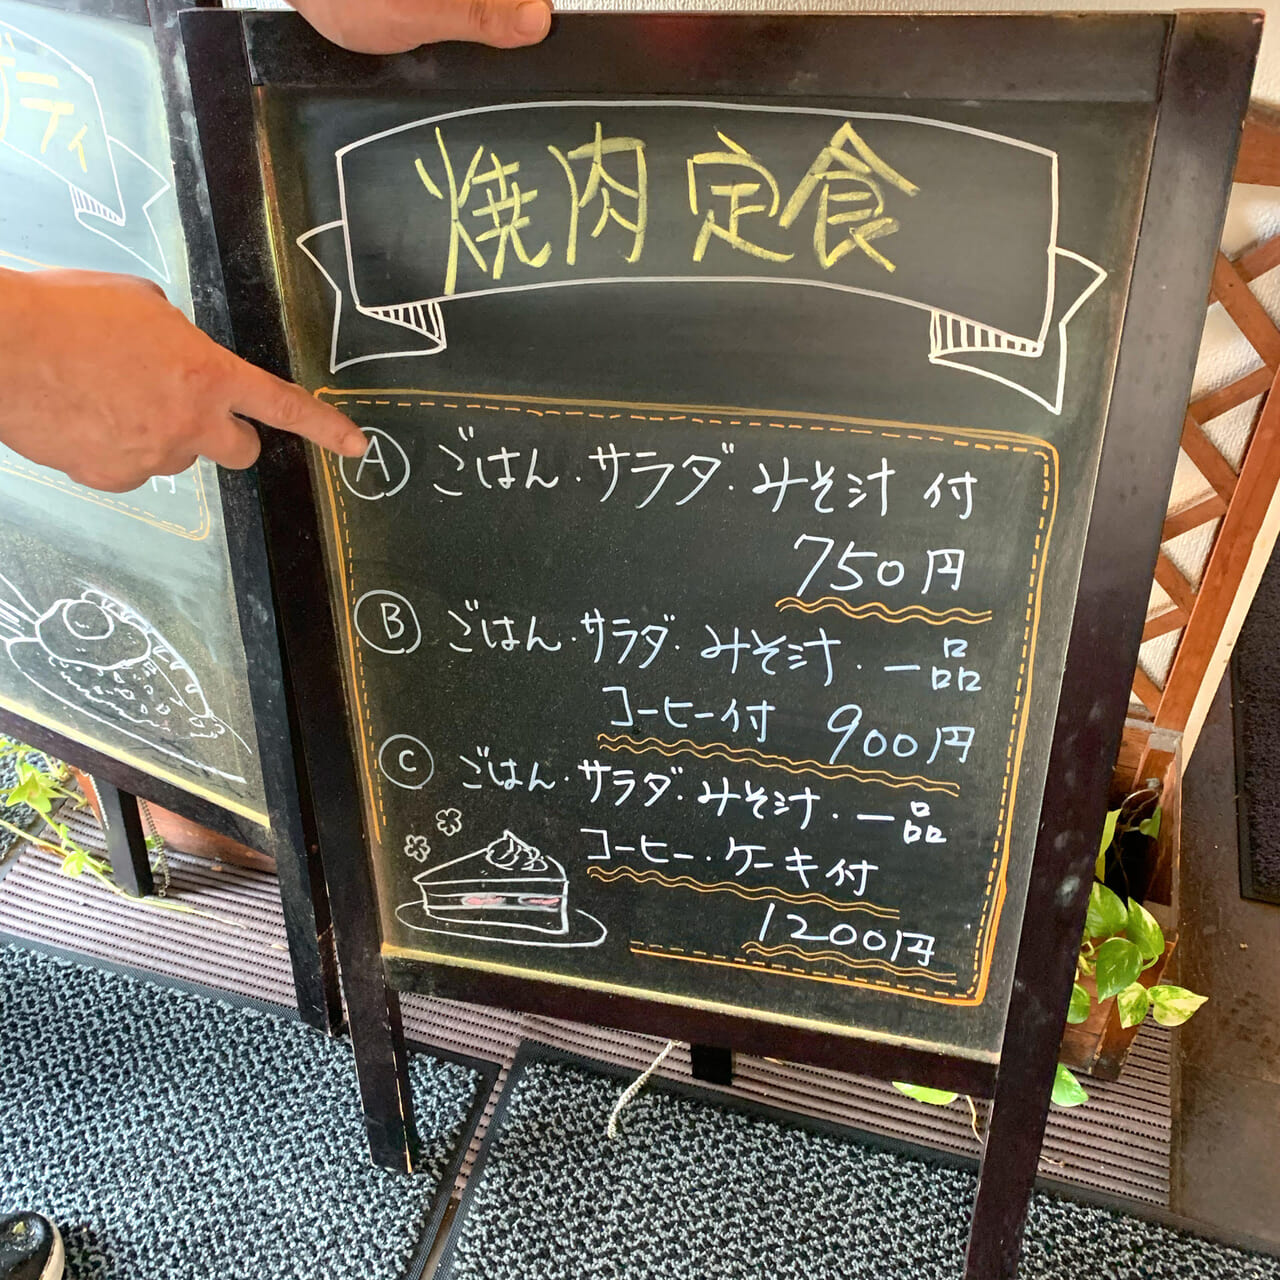 ティ
焼肉定食
Ⓐ ごはん・サラダ・みそ汁 付
750円
Ⓑ ごはん・サラダ・みそ汁・一品
コーヒー付 900円
Ⓒ ごはん・サラダ・みそ汁・一品
コーヒー・ケーキ付
1200円
円